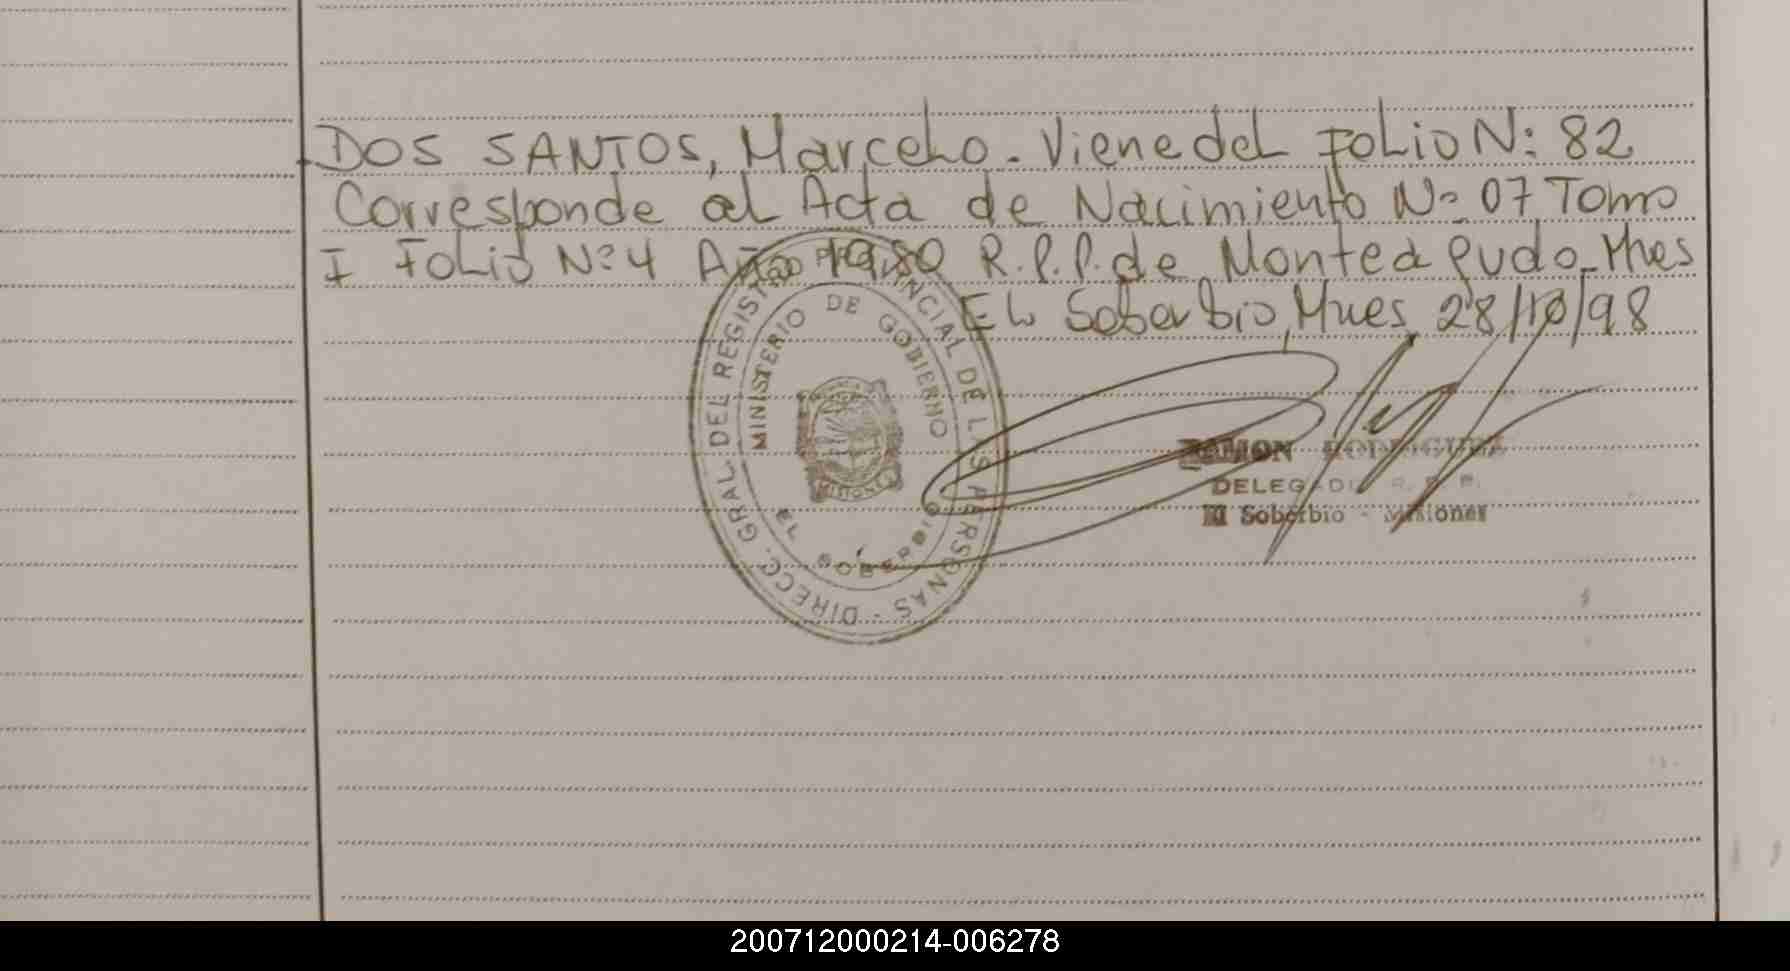 DOS SANTOS, Marcelo. Viene del Folio N: 82
Corresponde al Acta de Nacimiento Nº 07 Tomo
I Folio Nº 4 Año 1980 R.P.P. de Monteagudo Mnes
El Soberbio, Mnes, 28/10/98
DIRECC. GRAL. DEL REGISTRO PROVINCIAL DE LAS PERSONAS -
MINISTERIO DE GOBIERNO
MISIONES
EL SOBERBIO
RAMON RODRIGUEZ
DELEGADO R. P. P.
El Soberbio - Misiones
200712000214-006278